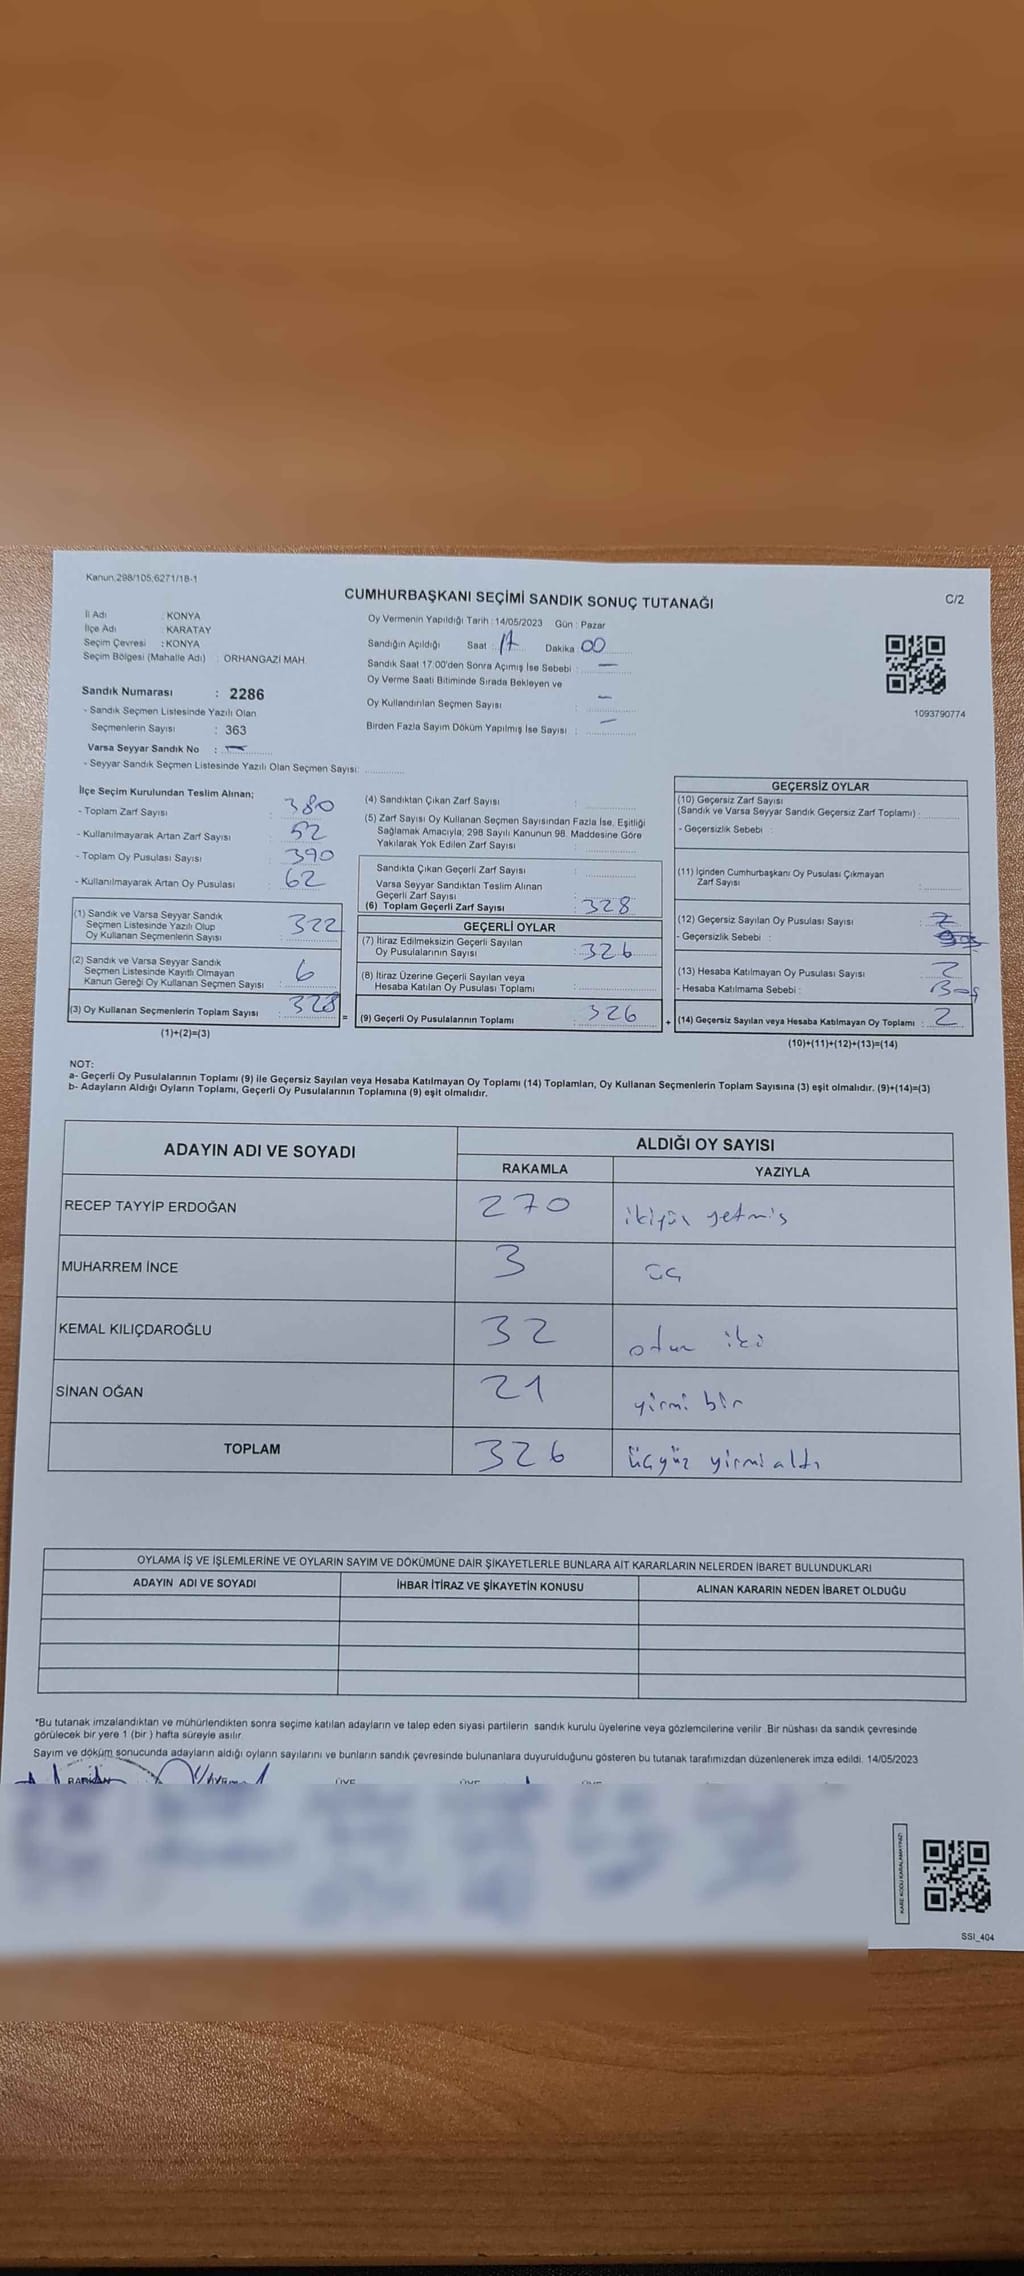 Kanun:298/105;6271/18-1
CUMHURBAŞKANI SEÇİMİ SANDIK SONUÇ TUTANAĞI
C/2
İl Adı : KONYA
İlçe Adı : KARATAY
Seçim Çevresi : KONYA
Seçim Bölgesi (Mahalle Adı) : ORHANGAZİ MAH.
Sandık Numarası : 2286
- Sandık Seçmen Listesinde Yazılı Olan
Seçmenlerin Sayısı : 363
Varsa Seyyar Sandık No : —
- Seyyar Sandık Seçmen Listesinde Yazılı Olan Seçmen Sayısı:
Oy Vermenin Yapıldığı Tarih : 14/05/2023 Gün : Pazar
Sandığın Açıldığı Saat : 17 Dakika 00
Sandık Saat 17:00'den Sonra Açımış İse Sebebi : —
Oy Verme Saati Bitiminde Sırada Bekleyen ve
Oy Kullandırılan Seçmen Sayısı : —
Birden Fazla Sayım Döküm Yapılmış İse Sayısı : —
1093790774
İlçe Seçim Kurulundan Teslim Alınan;
- Toplam Zarf Sayısı : 380
- Kullanılmayarak Artan Zarf Sayısı : 52
- Toplam Oy Pusulası Sayısı : 390
- Kullanılmayarak Artan Oy Pusulası : 62
(1) Sandık ve Varsa Seyyar Sandık
Seçmen Listesinde Yazılı Olup
Oy Kullanan Seçmenlerin Sayısı : 322
(2) Sandık ve Varsa Seyyar Sandık
Seçmen Listesinde Kayıtlı Olmayan
Kanun Gereği Oy Kullanan Seçmen Sayısı : 6
(3) Oy Kullanan Seçmenlerin Toplam Sayısı : 328
(1)+(2)=(3)
(4) Sandıktan Çıkan Zarf Sayısı :
(5) Zarf Sayısı Oy Kullanan Seçmen Sayısından Fazla İse, Eşitliği
Sağlamak Amacıyla; 298 Sayılı Kanunun 98. Maddesine Göre
Yakılarak Yok Edilen Zarf Sayısı :
Sandıkta Çıkan Geçerli Zarf Sayısı :
Varsa Seyyar Sandıktan Teslim Alınan
Geçerli Zarf Sayısı :
(6) Toplam Geçerli Zarf Sayısı : 328
GEÇERLİ OYLAR
(7) İtiraz Edilmeksizin Geçerli Sayılan
Oy Pusulalarının Sayısı : 326
(8) İtiraz Üzerine Geçerli Sayılan veya
Hesaba Katılan Oy Pusulası Toplamı :
= (9) Geçerli Oy Pusulalarının Toplamı : 326
GEÇERSİZ OYLAR
(10) Geçersiz Zarf Sayısı
(Sandık ve Varsa Seyyar Sandık Geçersiz Zarf Toplamı) :
- Geçersizlik Sebebi :
(11) İçinden Cumhurbaşkanı Oy Pusulası Çıkmayan
Zarf Sayısı :
(12) Geçersiz Sayılan Oy Pusulası Sayısı :
- Geçersizlik Sebebi :
(13) Hesaba Katılmayan Oy Pusulası Sayısı : 2
- Hesaba Katılmama Sebebi : Boş
+ (14) Geçersiz Sayılan veya Hesaba Katılmayan Oy Toplamı : 2
(10)+(11)+(12)+(13)=(14)
NOT:
a- Geçerli Oy Pusulalarının Toplamı (9) ile Geçersiz Sayılan veya Hesaba Katılmayan Oy Toplamı (14) Toplamları, Oy Kullanan Seçmenlerin Toplam Sayısına (3) eşit olmalıdır. (9)+(14)=(3)
b- Adayların Aldığı Oyların Toplamı, Geçerli Oy Pusulalarının Toplamına (9) eşit olmalıdır.
ADAYIN ADI VE SOYADI
ALDIĞI OY SAYISI
RAKAMLA YAZIYLA
RECEP TAYYİP ERDOĞAN 270 ikiyüz yetmiş
MUHARREM İNCE 3 üç
KEMAL KILIÇDAROĞLU 32 otuz iki
SİNAN OĞAN 21 yirmi bir
TOPLAM 326 üçyüz yirmi altı
OYLAMA İŞ VE İŞLEMLERİNE VE OYLARIN SAYIM VE DÖKÜMÜNE DAİR ŞİKAYETLERLE BUNLARA AİT KARARLARIN NELERDEN İBARET BULUNDUKLARI
ADAYIN ADI VE SOYADI İHBAR İTİRAZ VE ŞİKAYETİN KONUSU ALINAN KARARIN NEDEN İBARET OLDUĞU
*Bu tutanak imzalandıktan ve mühürlendikten sonra seçime katılan adayların ve talep eden siyasi partilerin sandık kurulu üyelerine veya gözlemcilerine verilir. Bir nüshası da sandık çevresinde
görülecek bir yere 1 (bir) hafta süreyle asılır.
Sayım ve döküm sonucunda adayların aldığı oyların sayılarını ve bunların sandık çevresinde bulunanlara duyurulduğunu gösteren bu tutanak tarafımızdan düzenlenerek imza edildi. 14/05/2023
ÜYE ÜYE ÜYE
KARE KODU KARALAMAYINIZ!
SSI_404